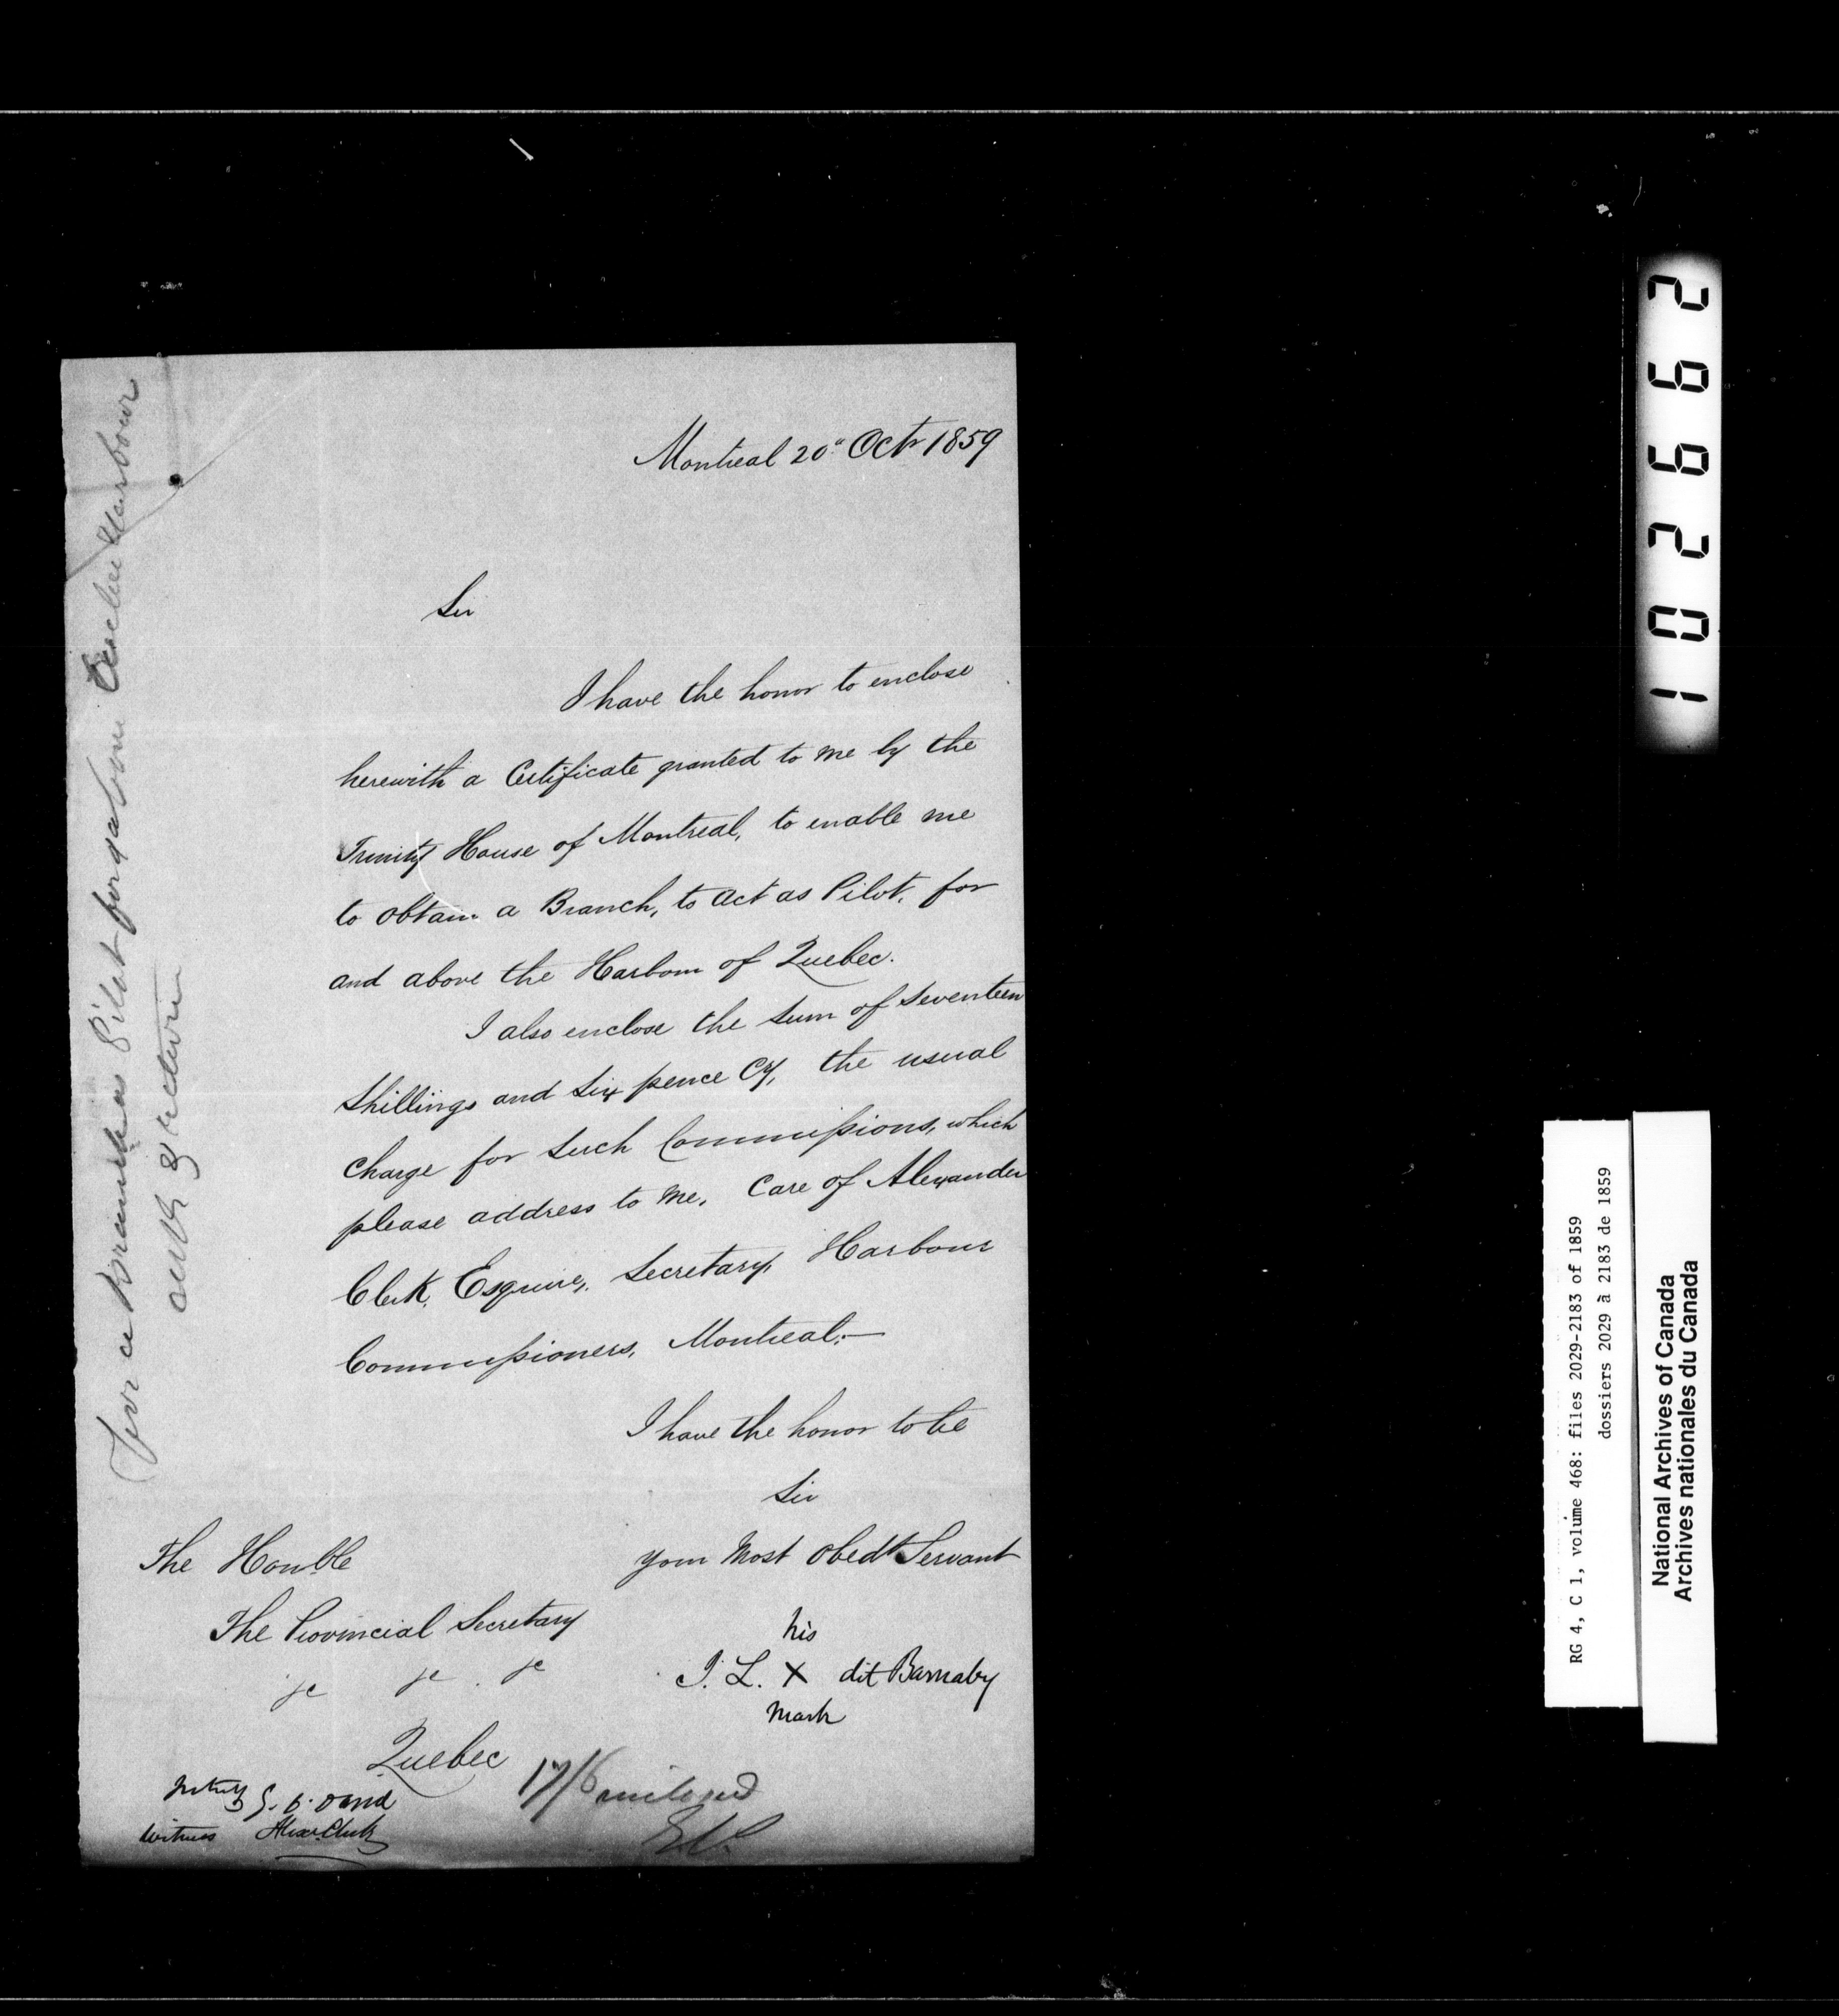 Montreal 20" Octr 1859
Sir
I have the honor to enclose
herewith a Certificate granted to me by the
Trinity House of Montreal, to enable me
to obtain a Branch, to act as Pilot, for
and above the Harbour of Quebec.
I also enclose the Sum of Seventeen
Shillings and Six pence Cy, the usual
charge for such Commissions, which
please address to me, Care of Alexander
Clerk, Esquire, Secretary, Harbour
Commissioners, Montreal.—
I have the honor to be
Sir
Your Most Obedt Servant
The Honble
The Provincial Secretary
&c &c &c
Quebec
his
J. L. X dit Barnaby
mark
David
Witness Alexr Clerk
17/6 enclosed
For a Branch as Pilot for & above Harbour
102662
RG 4, C 1, volume 468: files 2029-2183 of 1859
dossiers 2029 à 2183 de 1859
National Archives of Canada
Archives nationales du Canada